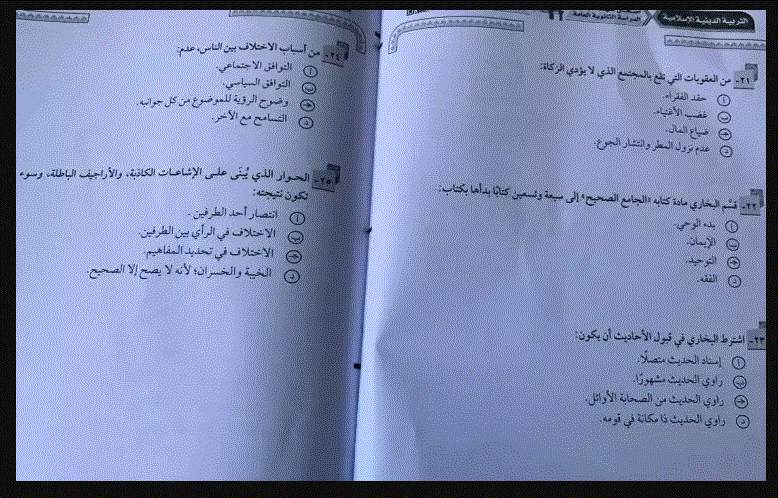 التربية الدينية الإسلامية
الدراسة الثانوية العامة
٢١- من العقوبات التي تقع بالمجتمع الذي لا يؤدي الزكاة:
أ حقد الفقراء.
ب غضب الأغنياء.
جـ ضياع المال.
د عدم نزول المطر وانتشار الجوع.
٢٢- قسَّم البخاري مادة كتابه «الجامع الصحيح» إلى سبعة وتسعين كتابًا بدأها بكتاب:
أ بدء الوحي.
ب الإيمان.
جـ التوحيد.
د الفقه.
٢٣- اشترط البخاري في قبول الأحاديث أن يكون:
أ إسناد الحديث متصلًا.
ب راوي الحديث مشهورًا.
جـ راوي الحديث من الصحابة الأوائل.
د راوي الحديث ذا مكانة في قومه.
٢٤- من أسباب الاختلاف بين الناس، عدم:
أ التوافق الاجتماعي.
ب التوافق السياسي.
جـ وضوح الرؤية للموضوع من كل جوانبه.
د التسامح مع الآخر.
٢٥- الحوار الذي يُبنَى على الإشاعات الكاذبة، والأراجيف الباطلة، وسوء
تكون نتيجته:
أ انتصار أحد الطرفين.
ب الاختلاف في الرأي بين الطرفين.
جـ الاختلاف في تحديد المفاهيم.
د الخيبة والخسران؛ لأنه لا يصح إلا الصحيح.